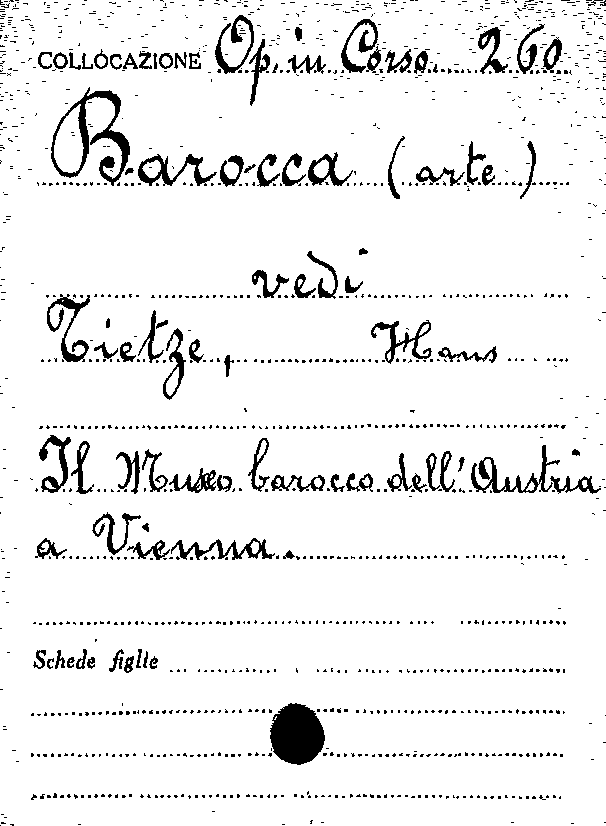 COLLOCAZIONE Op. in Corso. 260
Barocca (arte)
vedi
Tietze, Hans
Il Museo barocco dell'Austria
a Vienna.
Schede figlie